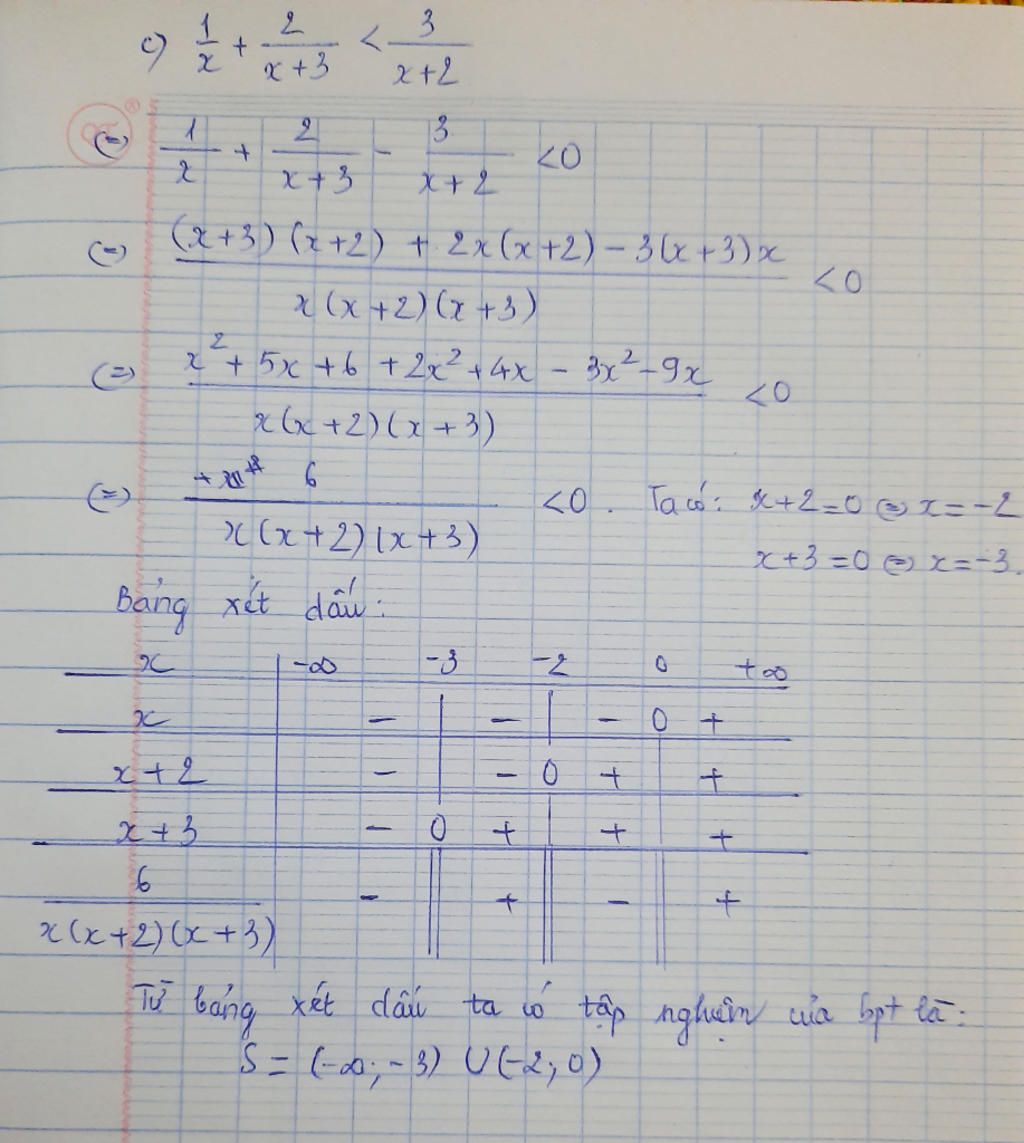 c) 1/x + 2/(x+3) < 3/(x+2)
(=) 1/x + 2/(x+3) - 3/(x+2) <0
(=) ((x+3)(x+2) + 2x(x+2) - 3(x+3)x)/(x(x+2)(x+3)) <0
(=) (x² + 5x + 6 + 2x² + 4x - 3x² - 9x)/(x(x+2)(x+3)) <0
(=) 6/(x(x+2)(x+3)) <0. Ta có: x+2=0 (=) x=-2
x+3=0 (=) x=-3.
Bảng xét dấu:
x | -∞ -3 -2 0 +∞
x | - | - | - 0 +
x+2 | - | - 0 + | +
x+3 | - 0 + | + | +
6/(x(x+2)(x+3)) | - || + || - || +
Từ bảng xét dấu ta có tập nghiệm của bpt là:
S = (-∞;-3) ∪ (-2;0)